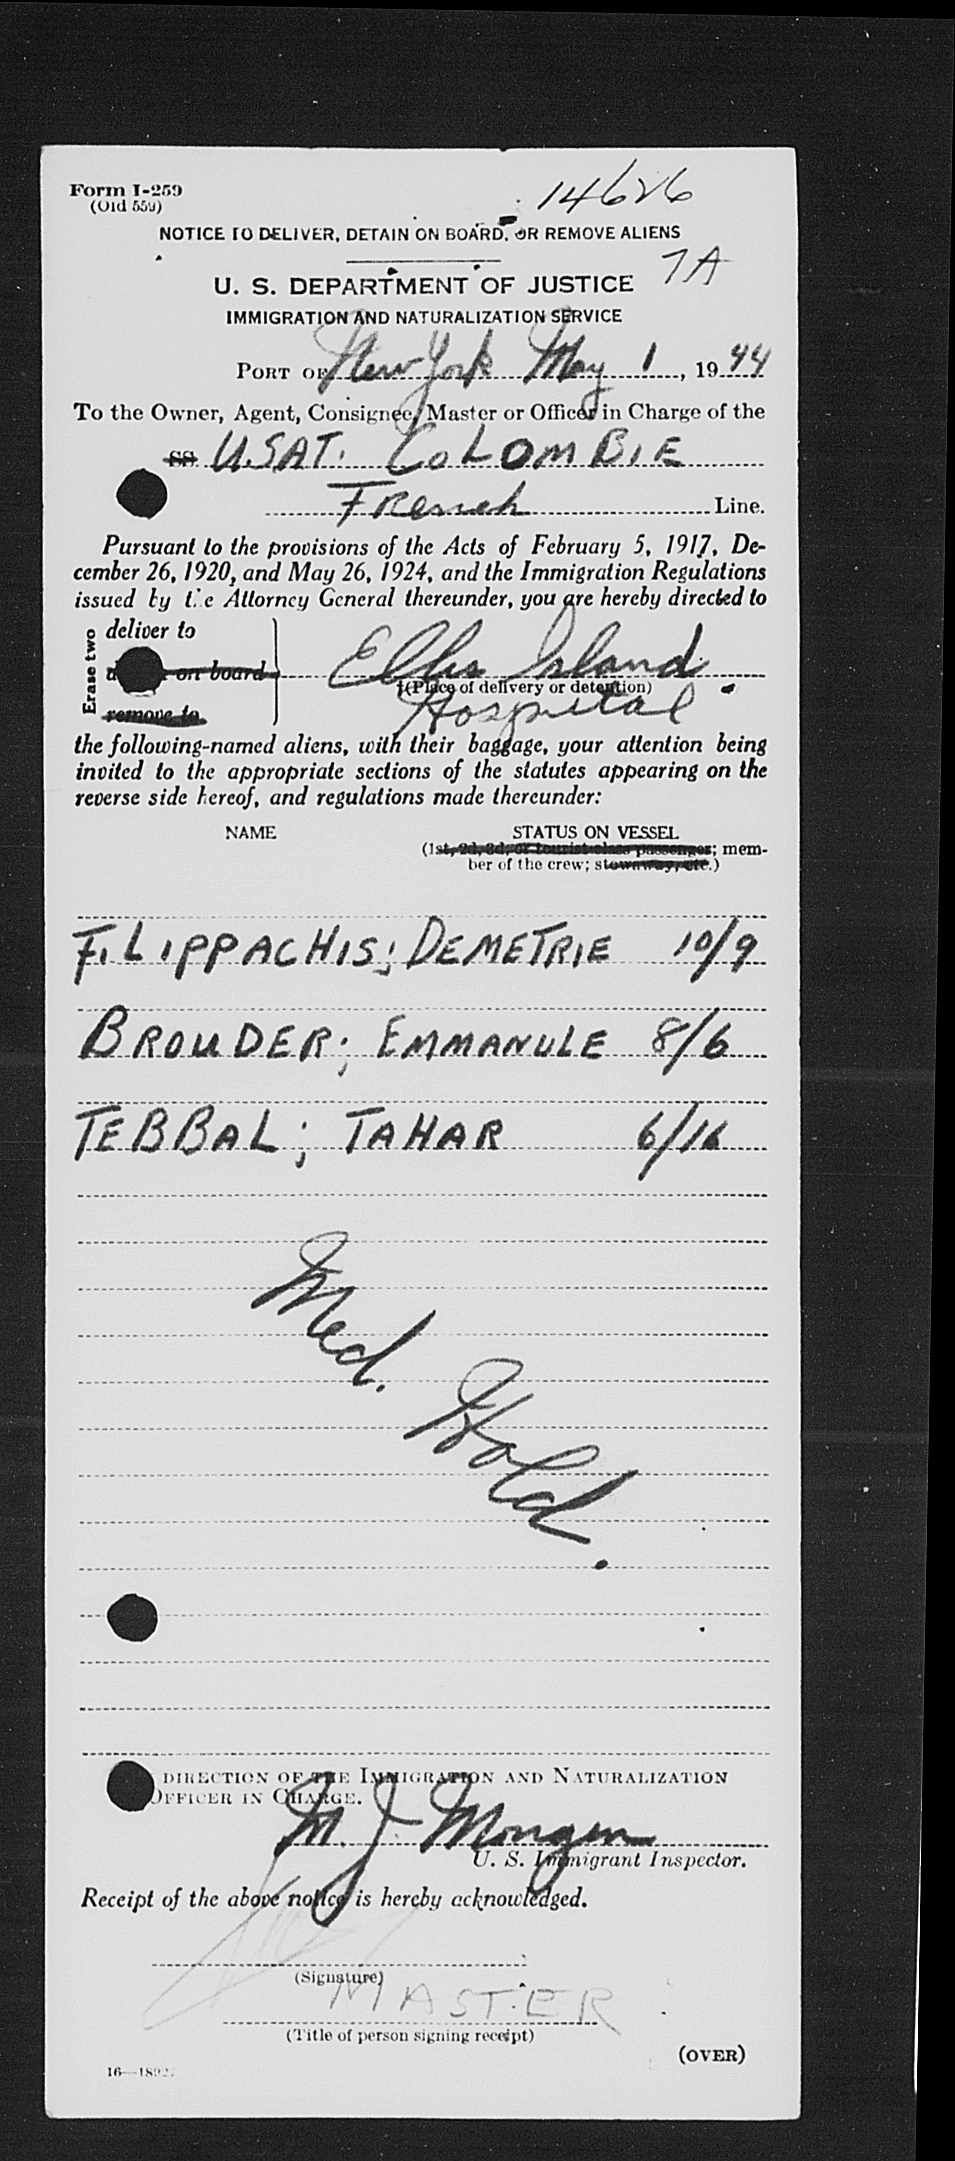 Form I-259
(Old 559)
14626
NOTICE TO DELIVER, DETAIN ON BOARD, OR REMOVE ALIENS
7A
U. S. DEPARTMENT OF JUSTICE
IMMIGRATION AND NATURALIZATION SERVICE
PORT OF New York May 1, 1944
To the Owner, Agent, Consignee, Master or Officer in Charge of the
SS U.S.A.T. COLOMBIE
French Line.
Pursuant to the provisions of the Acts of February 5, 1917, De-
cember 26, 1920, and May 26, 1924, and the Immigration Regulations
issued by the Attorney General thereunder, you are hereby directed to
Erase two
deliver to
on board
remove to
Ellis Island
(Place of delivery or detention)
Hospital
the following-named aliens, with their baggage, your attention being
invited to the appropriate sections of the statutes appearing on the
reverse side hereof, and regulations made thereunder:
NAME STATUS ON VESSEL
(1st, 2d, 3d, or tourist-class passenger; mem-
ber of the crew; stowaway, etc.)
FILIPPACHIS; DEMETRIE 10/9
BROUDER; EMMANULE 8/6
TEBBAL; TAHAR 6/16
Med. Hold.
DIRECTION OF THE IMMIGRATION AND NATURALIZATION
OFFICER IN CHARGE.
M. J. Mongen
U. S. Immigrant Inspector.
Receipt of the above notice is hereby acknowledged.
(Signature)
MASTER
(Title of person signing receipt)
(OVER)